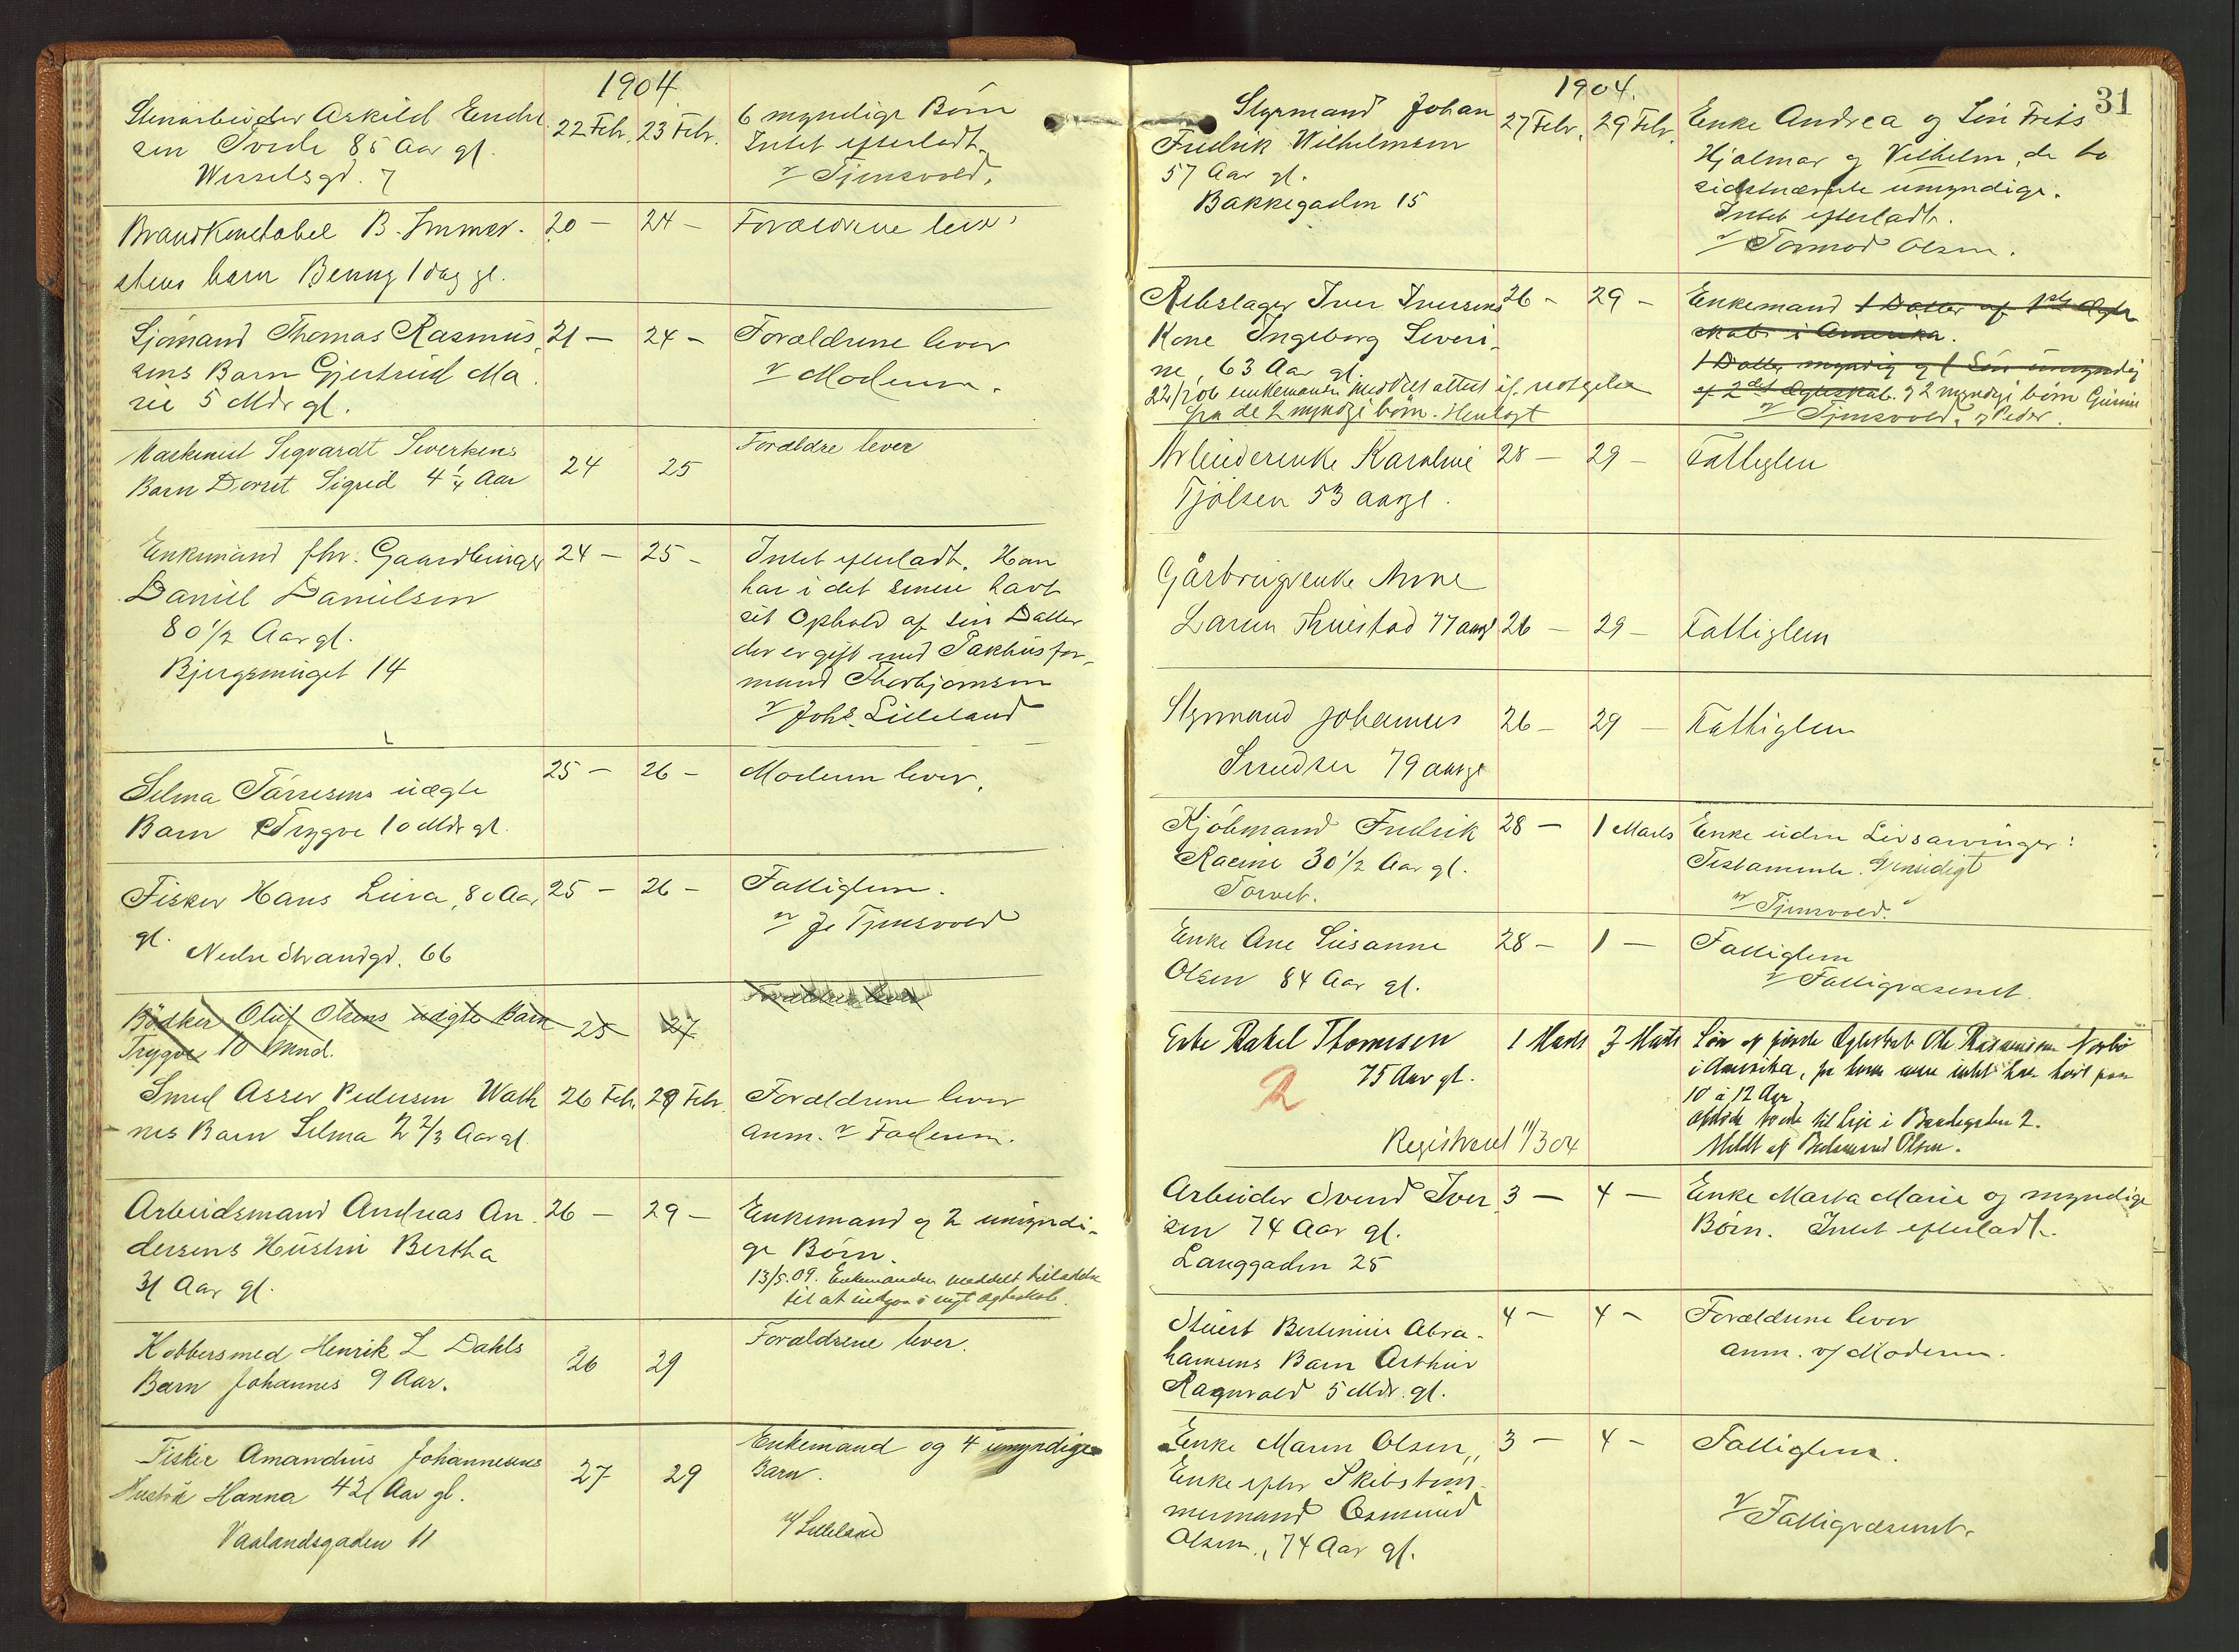 1904
Stenarbeider Askild Endre
sen Tvede 85 Aar gl.
Wesselsgd. 7
22 Febr. 23 Febr.
6 myndige Børn
Intet efterladt.
v/ Tjensvold.
Brandkonstabel B. Immer-
steins barn Benny 1 dag gl.
20 — 24 —
Forældrene lever
Sjömand Thomas Rasmus
sens Barn Gjertrud Ma
rie 5 Mdr gl.
21 — 24 —
Forældrene lever
v/ Moderen.
Maskinist Sigvardt Siverksens
Barn Dorret Sigrid 4 1/4 Aar
24 25
Forældre lever
Enkemand fhv. Gaardbruger
Daniel Danielsen
80 1/2 Aar gl.
Bjergsmuget 14
24 — 25 —
Intet efterladt. Han
har i det senere havt
sit Ophold af sin Datter
der er gift med Pakhusfor-
mand Thorbjørnsen
v/ Johs. Lilleland
Selma Tørresens uægte
Barn Trygve 10 Mdr gl.
25 — 26 —
Moderen lever.
Fisker Hans Lura, 80 Aar
gl.
Nedre Strandgd. 66
25 — 26 —
Fattiglem.
v/ J. Tjensvold
Bödker Oluf Olsens uægte Barn
Trygve 10 Mnd.
25 27
Forældrene lever
Smed Asser Pedersen Wath
nes Barn Selma 2 2/3 Aar gl.
26 Feb. 29 Febr.
Forældrene lever
anm. v/ Faderen.
Arbeidsmand Andreas An
dersens Hustru Bertha
31 Aar gl.
26 — 29 —
Enkemand og 2 umyndi-
ge Børn.
13/5.09. Enkemanden meddelt tilladelse
til at indgaa i nyt ægteskab.
Kobbersmed Henrik L Dahls
Barn Johannes 9 Aar.
26 29
Forældrene lever.
Fisker Amandus Johannesens
Hustru Hanna 42 Aar gl.
Vaalandsgaden 11
27 29
Enkemand og 4 umyndige
Barn.
v/ Lilleland
31
1904.
Styrmand Johan
Fredrik Wilhelmsen
57 Aar gl.
Bakkegaden 15
27 Febr. 29 Febr.
Enke Andrea og Søn Frits
Hjalmar og Vilhelm, de to
sidstnævnte umyndige.
Intet efterladt.
v/ Tormod Olsen.
Rebslager Iver Iversens
Kone Ingeborg Severi-
ne, 63 Aar gl.
22/1 06 enkemanden meddelt attest
fra de 2 myndige børn. Henlagt
26 — 29 —
Enkemand 1 Datter af 1ste Ægte
skab i Amerika.
1 Datter myndig og 1 Søn umyndig
af 2det Ægteskab. og 2 myndige børn
v/ Tjensvold. og Peder.
Arbeiderenke Karoline
Tjølsen 53 aar gl.
28 — 29 —
Fattiglem
Gårbrugrenke Anne
Laren 77 aar gl
26 — 29 —
Fattiglem
Styrmand Johannes
79 aar gl
26 — 29 —
Fattiglem
Kjöbmand Fredrik
Racine 30 1/2 Aar gl.
Torvet.
28 — 1 Marts
Enke uden Livsarvinger:
Testamente. Gjensidigt
v/ Tjensvold.
Enke Ane Susanne
Olsen 84 Aar gl.
28 — 1 —
Fattiglem
v/ Fattigvæsenet.
Enke Rakel Thomsen
75 Aar gl.
2
Registreret 11/3 04
1 Marts 3 Marts
Søn af første Ægteskab Ole Rasmussen
i Amerika, fra hvem man intet har hört paa
10 à 12 Aar
Afdøde boede til Leje i Bandegaden 2.
Meldt af Olsen.
Arbeider Svend Iver
sen 74 Aar gl.
Langgaden 25
3 — 4 —
Enke Marta Marie og myndige
Børn. Intet efterladt.
Stuert Bertinius Abra-
hamsens Barn Arthur
Ragnvald 5 Mdr. gl.
4 — 4 —
Forældrene lever
anm. v/ Moderen.
Enke Maren Olsen,
Enke efter Skibstøm-
mermand Osmund
Olsen, 74 Aar gl.
3 — 4 —
Fattiglem.
v/ Fattigvæsenet.